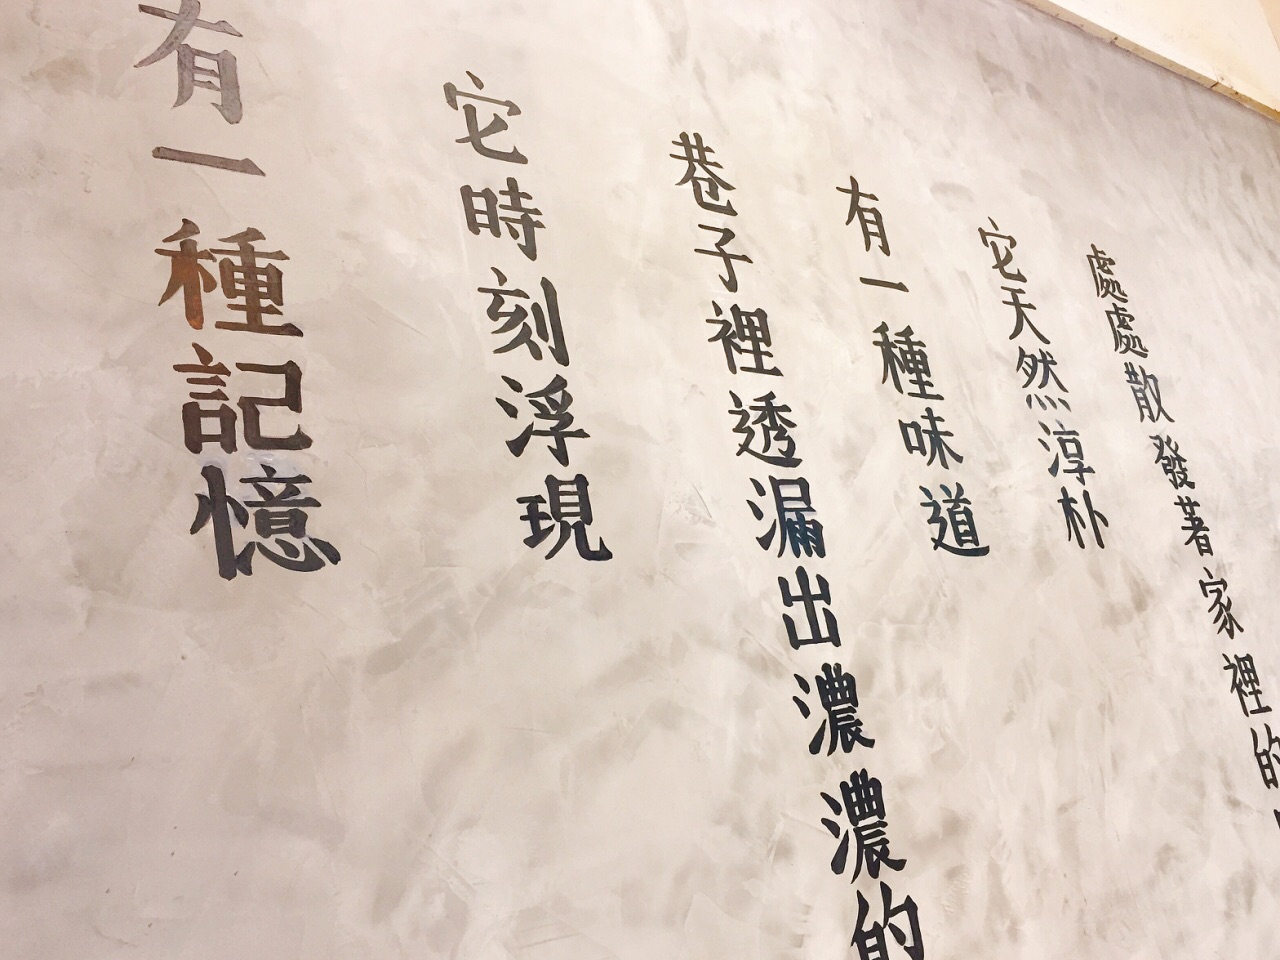 有一種記憶
它時刻浮現
巷子裡透漏出濃濃的
有一種味道
它天然淳朴
處處散發著家裡的